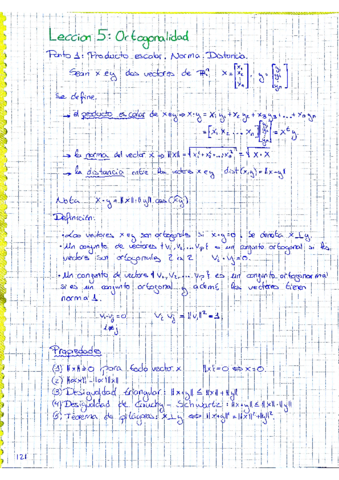 Lección 5: Ortogonalidad
Punto 1: Producto escalar. Norma. Distancia.
Sean x e y dos vectores de ℝⁿ, x = [x₁ x₂ ⋮ xₙ], y = [y₁ y₂ ⋮ yₙ]
Se define
→ el producto escalar de x e y → x·y = x₁y₁ + x₂y₂ + x₃y₃ + ... + xₙyₙ
= [x₁ x₂ ... xₙ] [y₁ ⋮ yₙ] = xᵗy
→ la norma del vector x → ‖x‖ = √(x₁² + x₂² + ... + xₙ²) = √(x·x)
→ la distancia entre los vectores x e y dist(x,y) = ‖x-y‖
Nota x·y = ‖x‖·‖y‖ cos(x̂y)
Definición:
·Los vectores x e y son ortogonales si x·y=0, se denota x⊥y.
·Un conjunto de vectores {v₁, v₂, ... vₚ} es un conjunto ortogonal si los
vectores son ortogonales 2 a 2 vᵢ·vⱼ=0.
·Un conjunto de vectores {v₁, v₂, ... vₚ} es un conjunto ortonormal
si es un conjunto ortogonal y además los vectores tienen
norma 1.
vᵢ·vⱼ=0 vᵢ·vᵢ = ‖vᵢ‖² = 1.
i≠j
Propiedades
(1) ‖x‖≥0 para todo vector x ‖x‖=0 ⇔ x=0.
(2) ‖αx‖ = |α|‖x‖
(3) Desigualdad triangular: ‖x+y‖ ≤ ‖x‖+‖y‖
(4) Desigualdad de Cauchy - Schwartz: |x·y| ≤ ‖x‖·‖y‖
(5) Teorema de pitágoras: x⊥y ⇔ ‖x+y‖² = ‖x‖²+‖y‖².
121